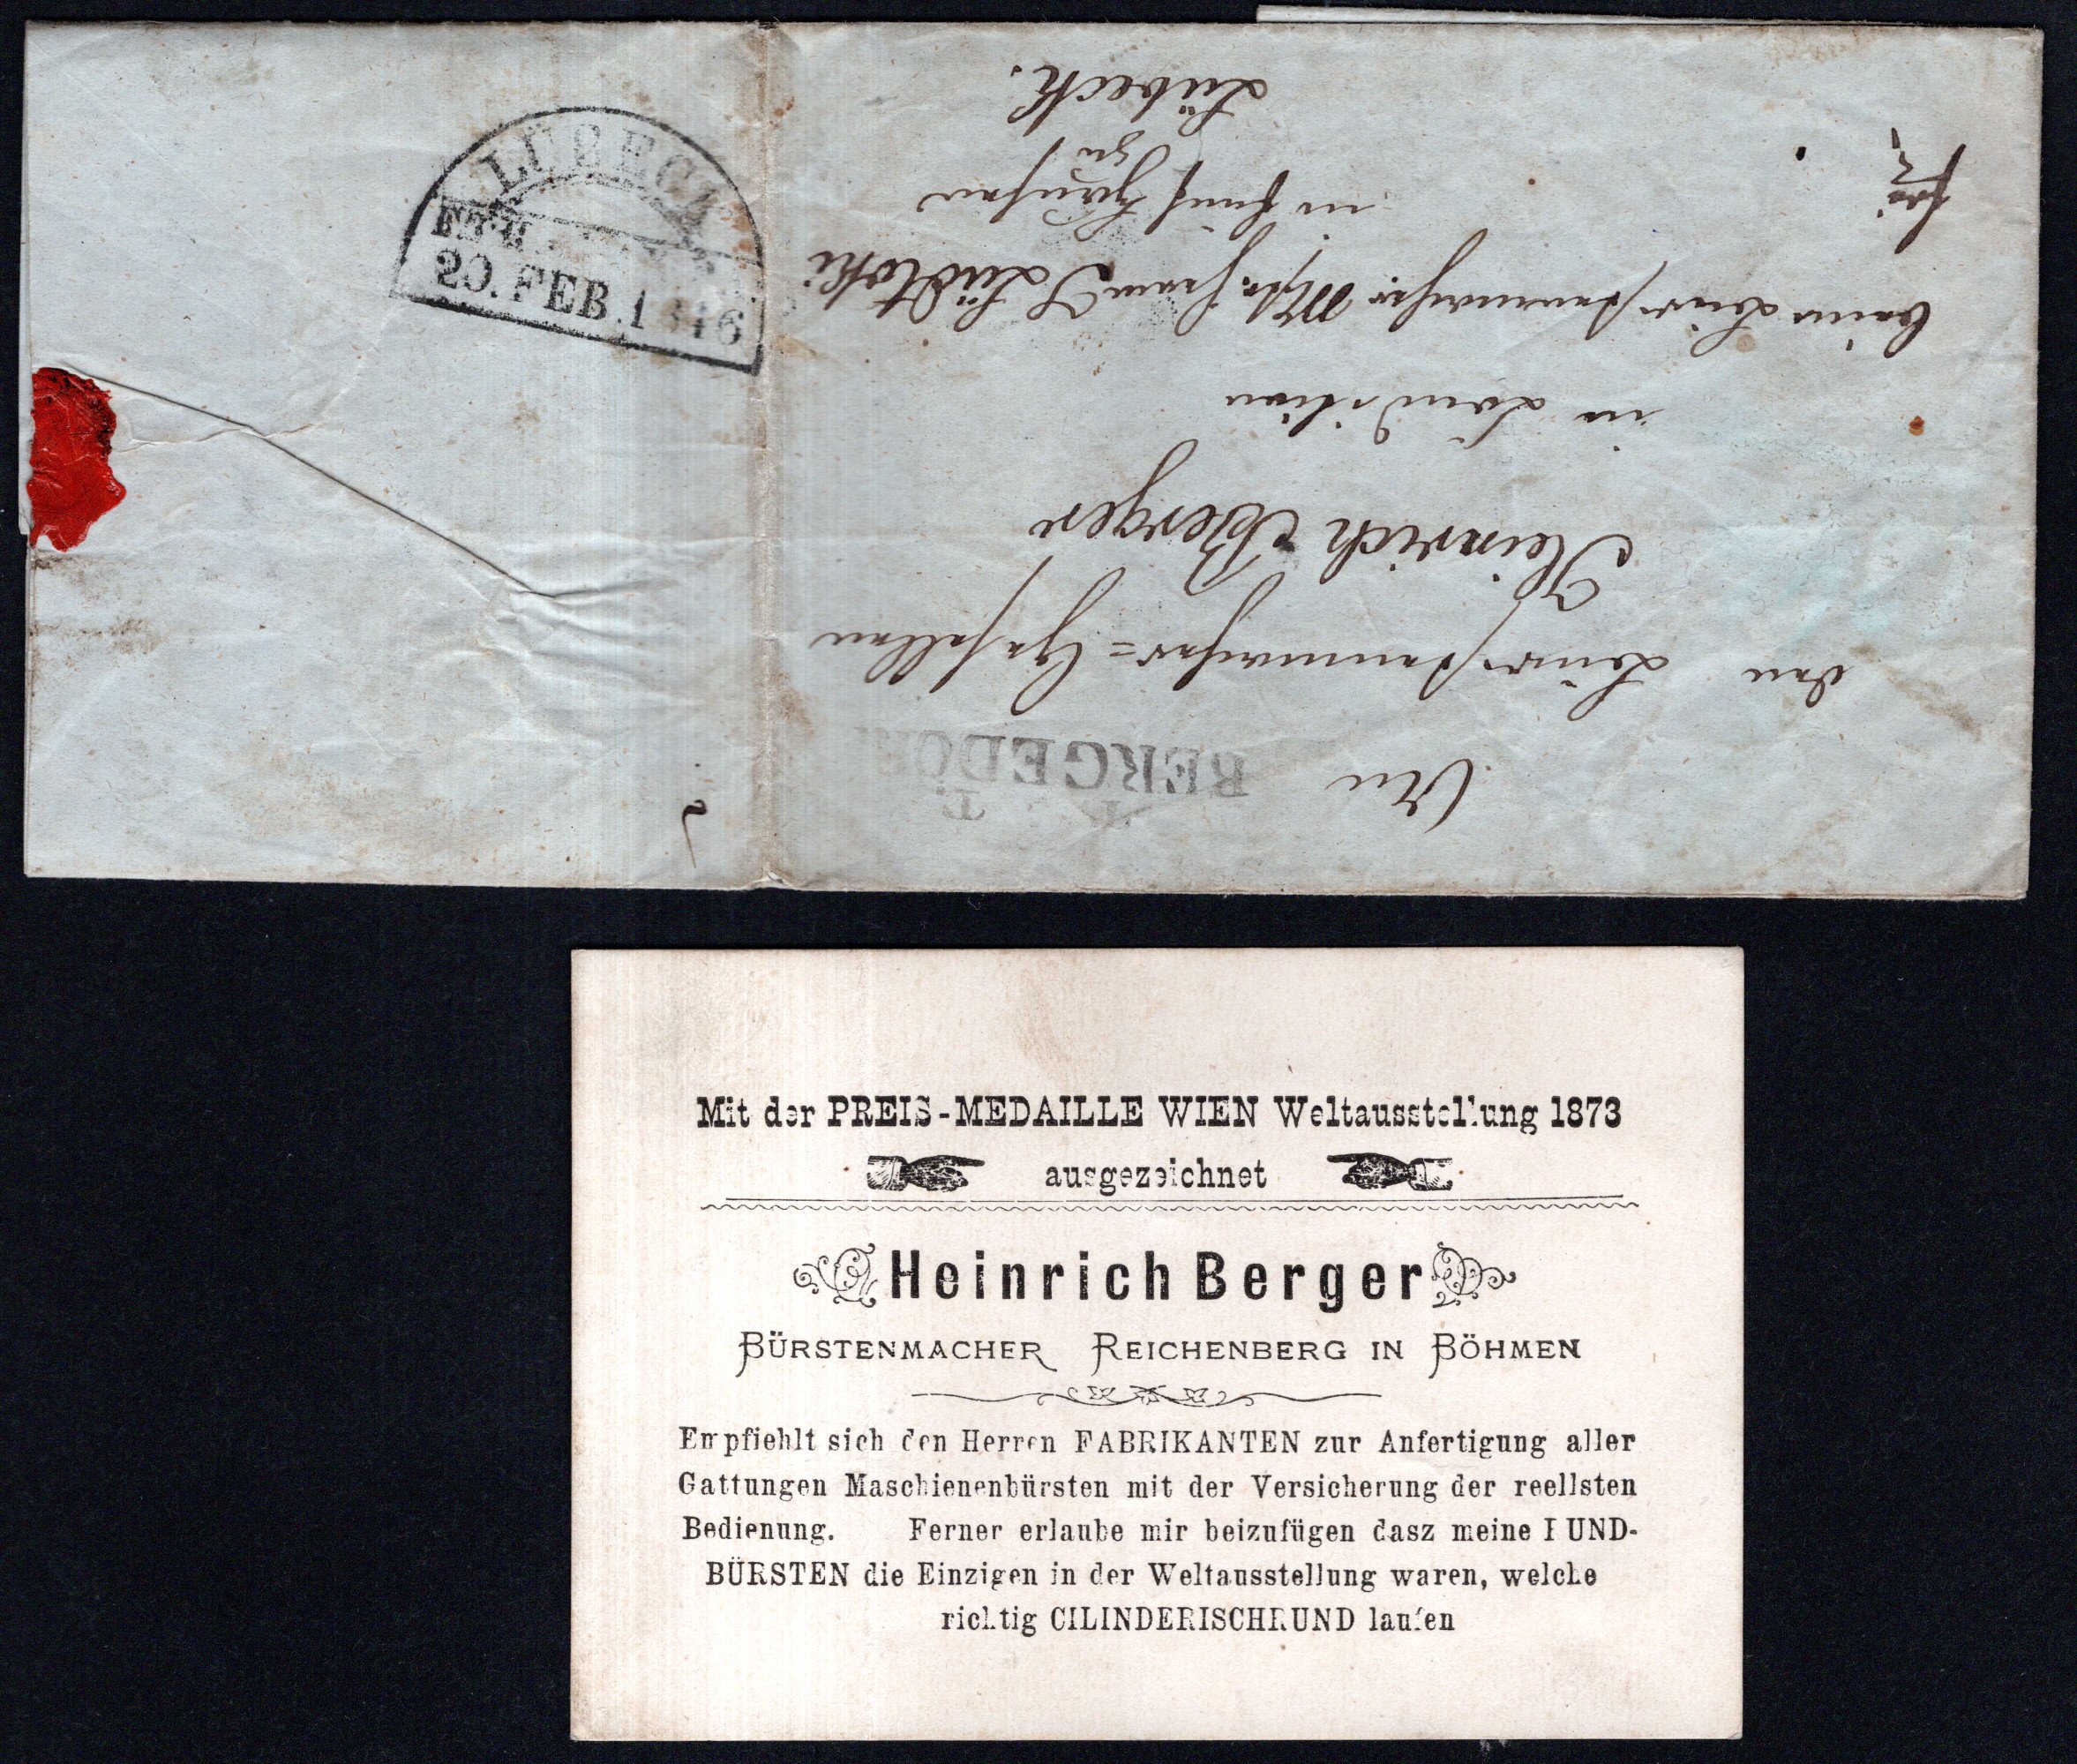 LÜBECK
20. FEB. 1846
T. T.
BERGEDOR
An
den Bürstenmacher=Gesellen
Heinrich Berger
in Condition
beim Bürstenmacher Mstr. Herrn Lüdtke
in fünf Hausen
zu
Lübeck.
frei
Mit der PREIS-MEDAILLE WIEN Weltausstellung 1873
ausgezeichnet
Heinrich Berger
BÜRSTENMACHER REICHENBERG IN BÖHMEN
Empfiehlt sich den Herren FABRIKANTEN zur Anfertigung aller
Gattungen Maschienenbürsten mit der Versicherung der reellsten
Bedienung. Ferner erlaube mir beizufügen dasz meine RUND-
BÜRSTEN die Einzigen in der Weltausstellung waren, welche
richtig CILINDERISCHRUND laufen